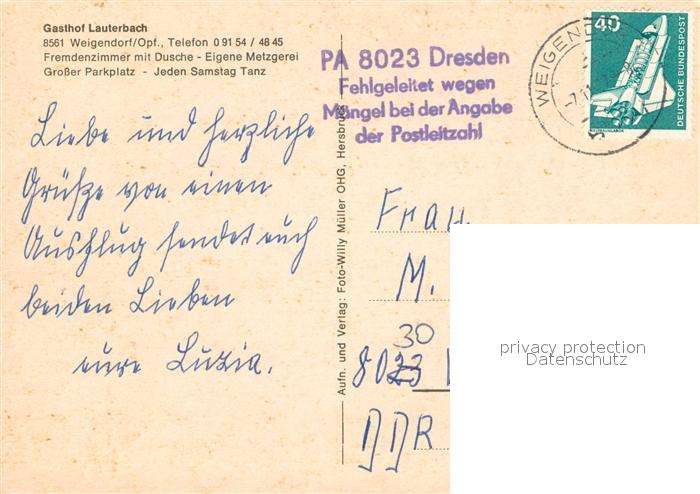 Gasthof Lauterbach
8561 Weigendorf/Opf., Telefon 0 91 54 / 48 45
Fremdenzimmer mit Dusche - Eigene Metzgerei
Großer Parkplatz - Jeden Samstag Tanz
Liebe und herzliche
Grüße von einem
Ausflug sendet euch
beiden Lieben
eure Luzia.
Aufn. und Verlag: Foto-Willy Müller OHG, Hersbruck
PA 8023 Dresden
Fehlgeleitet wegen
Mängel bei der Angabe
der Postleitzahl
WEIGEND
-7.1
40
DEUTSCHE BUNDESPOST
WELTRAUMLABOR
Frau
M.
30
8023
DDR
privacy protection
Datenschutz